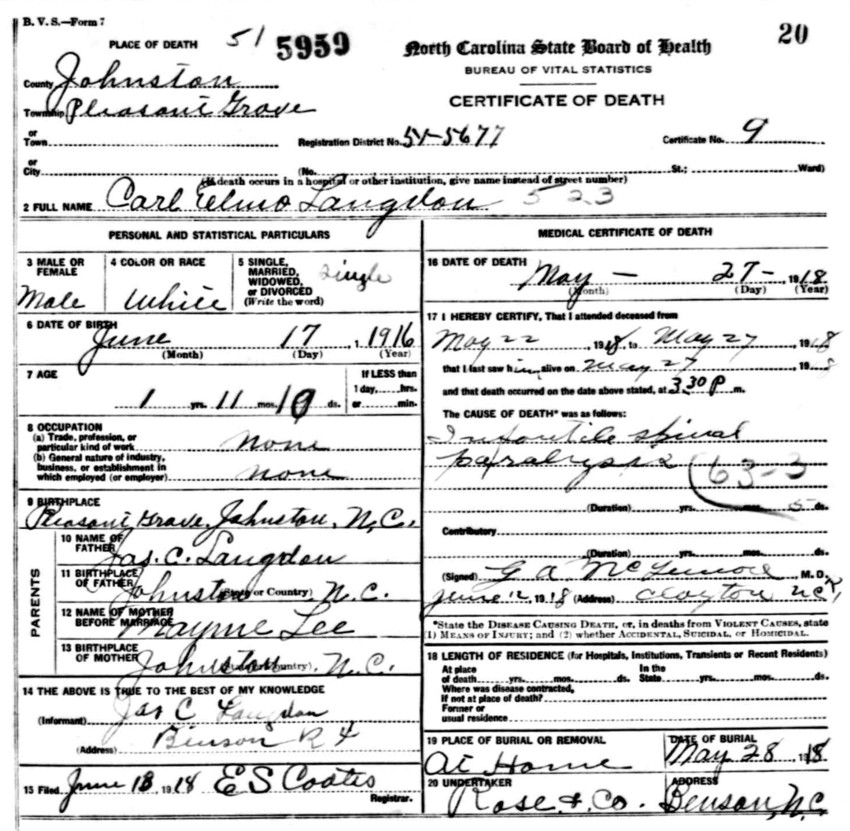 B. V. S.—Form 7
PLACE OF DEATH 51 5959
North Carolina State Board of Health 20
BUREAU OF VITAL STATISTICS
CERTIFICATE OF DEATH
County Johnston
Township Pleasant Grove
or
Town
Registration District No. 51-5677
Certificate No. 9
or
City
(No. St.; Ward)
(If death occurs in a hospital or other institution, give name instead of street number)
2 FULL NAME Carl Elmo Langdon 523
PERSONAL AND STATISTICAL PARTICULARS
3 MALE OR FEMALE Male
4 COLOR OR RACE White
5 SINGLE, MARRIED, WIDOWED, or DIVORCED (Write the word) single
6 DATE OF BIRTH June 17, 1916
(Month) (Day) (Year)
7 AGE
1 yrs. 11 mos. 10 ds.
If LESS than
1 day, hrs.
or min.
8 OCCUPATION
(a) Trade, profession, or
particular kind of work none
(b) General nature of industry,
business, or establishment in
which employed (or employer) none
9 BIRTHPLACE
Pleasant Grove, Johnston, N.C.
PARENTS
10 NAME OF FATHER Jas. C. Langdon
11 BIRTHPLACE OF FATHER (State or Country) Johnston N.C.
12 NAME OF MOTHER BEFORE MARRIAGE Mayme Lee
13 BIRTHPLACE OF MOTHER (State or Country) Johnston, N.C.
14 THE ABOVE IS TRUE TO THE BEST OF MY KNOWLEDGE
(Informant) Jas C Langdon
(Address) Binson R 4
15 Filed June 18 1918 E S Coates
Registrar.
MEDICAL CERTIFICATE OF DEATH
16 DATE OF DEATH May — 27 — 1918
(Month) (Day) (Year)
17 I HEREBY CERTIFY, That I attended deceased from
May 22, 1918, to May 27 1918
that I last saw him alive on May 27 1918
and that death occurred on the date above stated, at 3 30 P m.
The CAUSE OF DEATH* was as follows:
Infantile spinal
paralysis (63-3
(Duration) yrs. mos. 5 ds.
Contributory
(Duration) yrs. mos. ds.
(Signed) G A McLemore M. D.
June 12, 1918 (Address) Clayton NC
*State the DISEASE CAUSING DEATH, or, in deaths from VIOLENT CAUSES, state
1) MEANS OF INJURY; and (2) whether ACCIDENTAL, SUICIDAL, or HOMICIDAL.
18 LENGTH OF RESIDENCE (for Hospitals, Institutions, Transients or Recent Residents)
At place In the
of death yrs. mos. ds. State yrs. mos. ds.
Where was disease contracted,
If not at place of death?
Former or
usual residence
19 PLACE OF BURIAL OR REMOVAL At Home
DATE OF BURIAL May 28 1918
20 UNDERTAKER Rose & Co.
ADDRESS Benson, N.C.